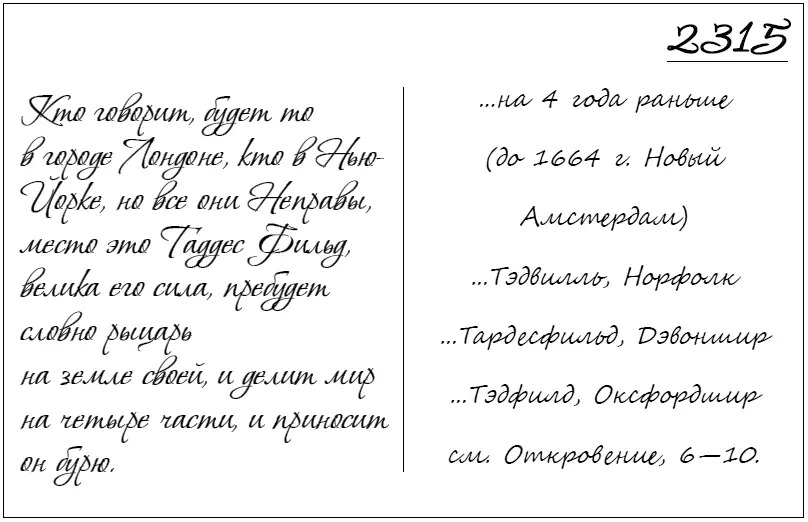 2315
Кто говорит, будет то
в городе Лондоне, кто в Нью-
Йорке, но все они Неправы,
место это Таддес Фильд,
велика его сила, пребудет
словно рыцарь
на земле своей, и делит мир
на четыре части, и приносит
он бурю.
...на 4 года раньше
(до 1664 г. Новый
Амстердам)
...Тэдвилль, Норфолк
...Тардесфильд, Дэвоншир
...Тэдфилд, Оксфордшир
см. Откровение, 6—10.